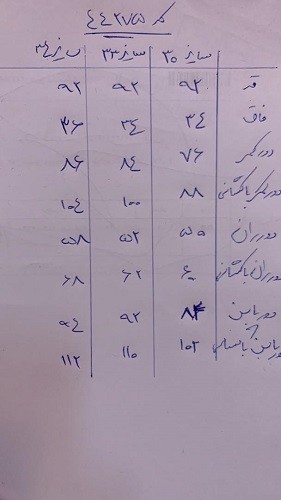 کد ۴۴۲۷۵
سایز ۳۰ سایز ۳۳ سایز ۳۴
قد ۹۲ ۹۲ ۹۲
فاق ۳۴ ۳۴ ۳۶
دور کمر ۷۶ ۸۴ ۸۶
دور کمر با کشسانی ۸۸ ۱۰۰ ۱۰۴
دور ران ۵۰ ۵۲ ۵۸
دور ران با کشسانی ۶۰ ۶۲ ۶۸
دور باسن ۸۴ ۹۲ ۹۴
دور باسن با ۱۰۲ ۱۱۰ ۱۱۲